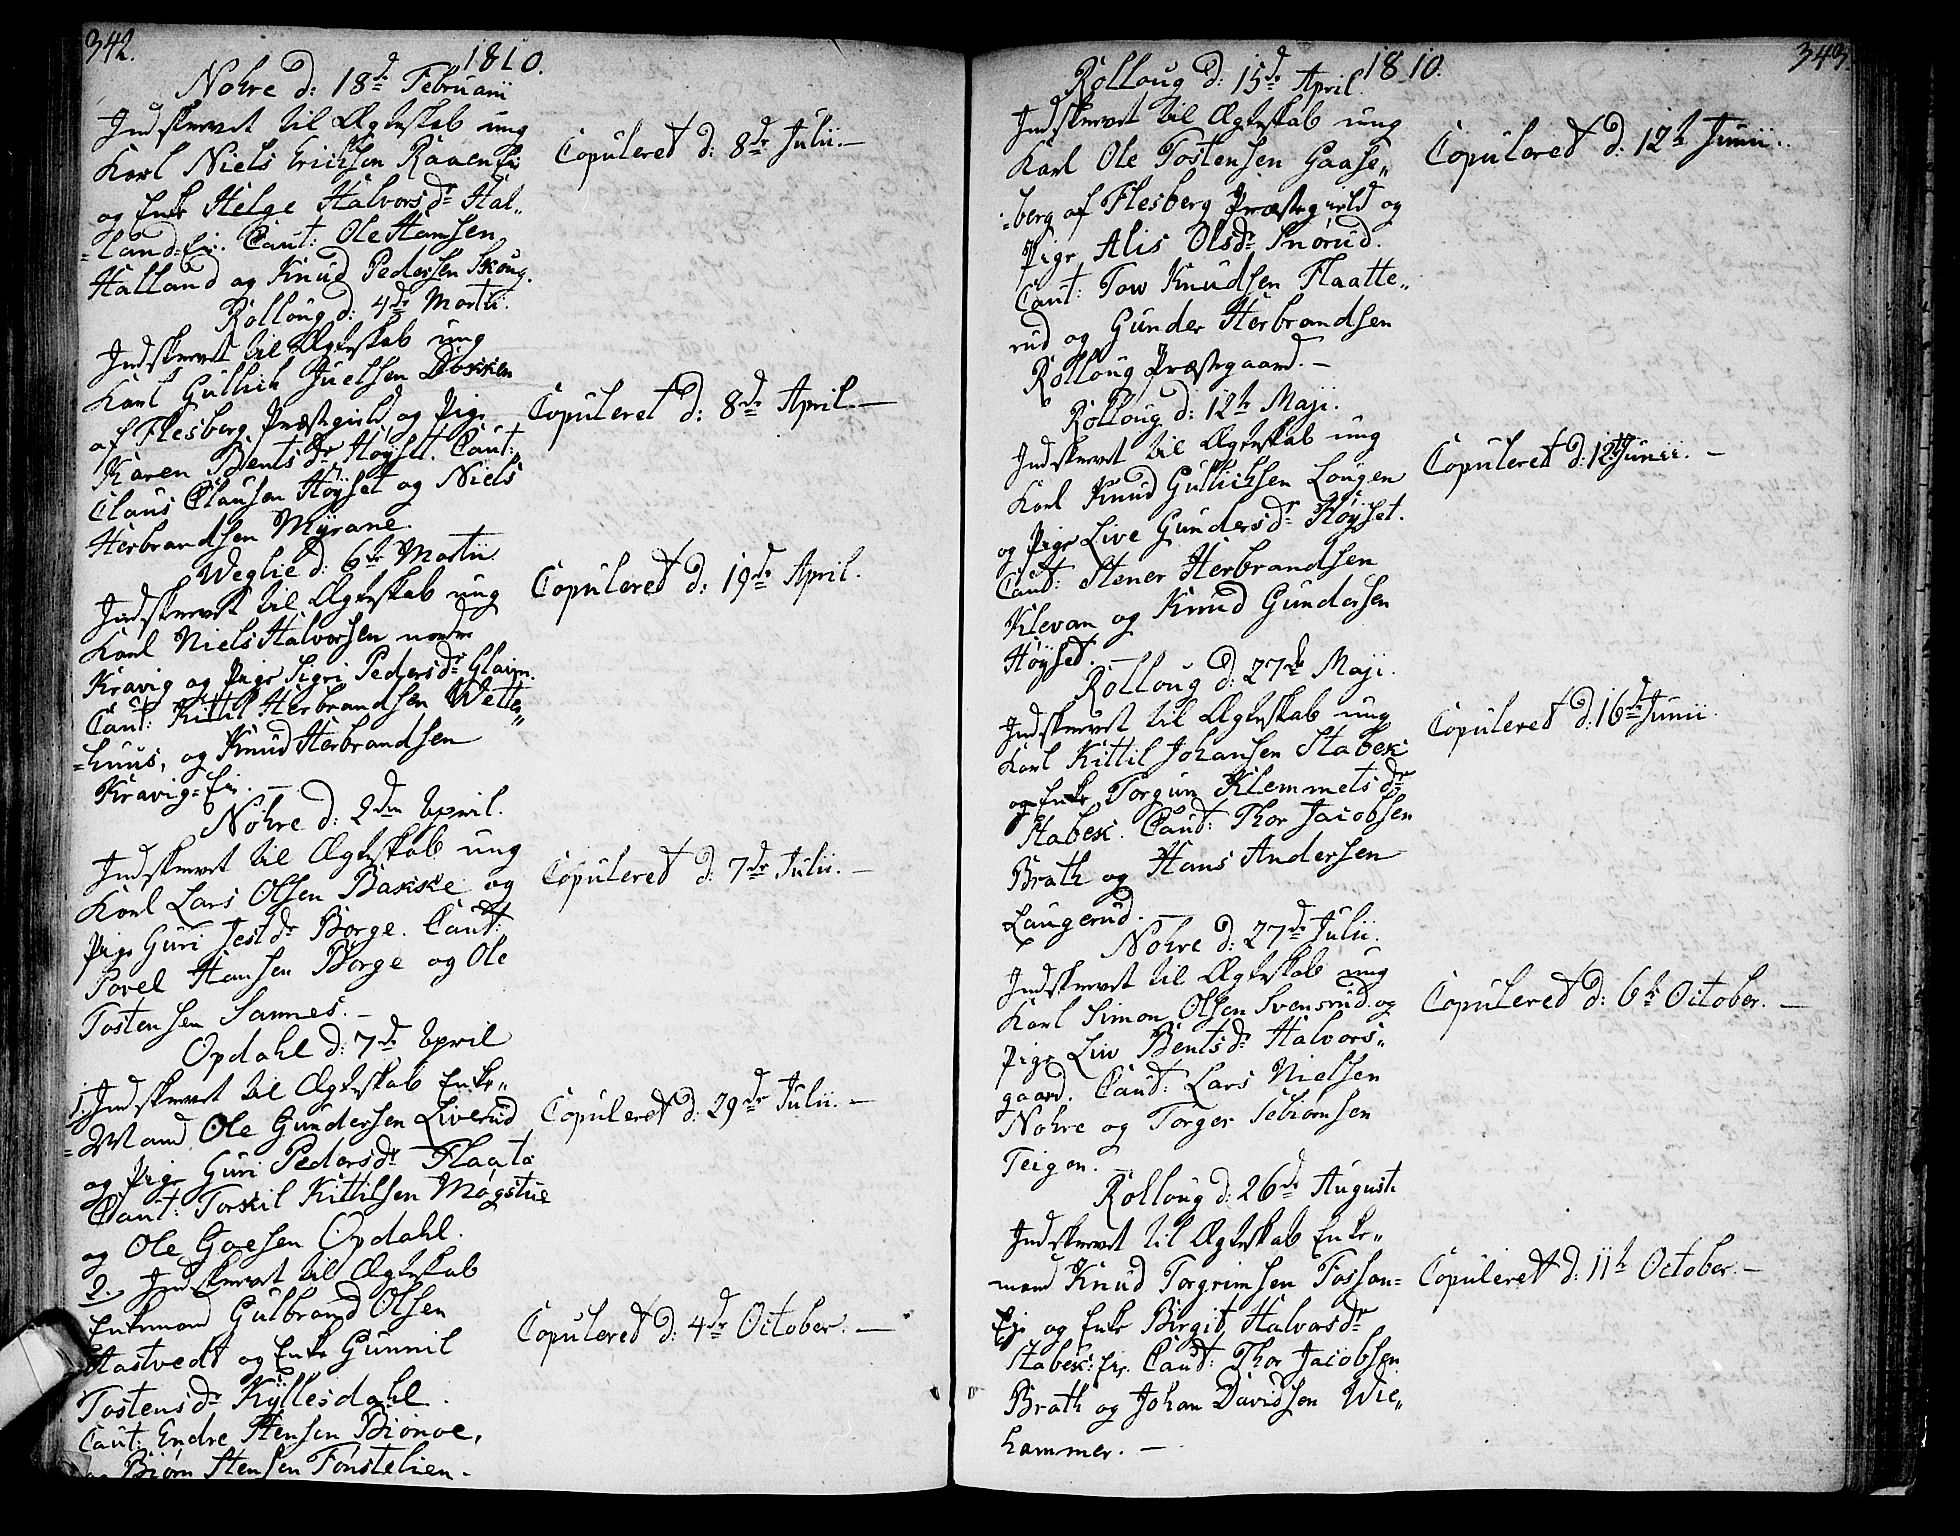 342.
1810.
Nohre d: 18de Februarii
Indskrevet til Ægteskab ung
Karl Niels Erichsen Raaen Ei
og Enke Helge Halvorsdr Hal„
=land=Ei. Caut: Ole Hansen
Halland og Knud Pedersen Skoug.
Copuleret d: 8de Julii.—
Rolloug d: 4de Martii.
Indskrevet til Ægteskab ung
Karl Gullich Juelsen Bakken
af Flesberg Præstegield og Pige
Karen Bentsdr Høyset. Caut:
Claus Clausen Høyset og Niels
Herbrandsen Myrane.
Copuleret d: 8de April.—
Weglie d: 6te Martii
Indskrevet til Ægteskab ung
Karl Niels Halvorsen nordre
Kravig og Pige Sigri Pedersdr Glaim.
Caut: Kittil Herbrandsen Wette„
=huus, og Knud Herbrandsen
Kravig=Ei. —
Copuleret d: 19de April.
Nohre d: 2den April.
Indskrevet til Ægteskab ung
Karl Lars Olsen Bakke og
Pige Guri Jestdr Borge. Caut:
Povel Hansen Borge og Ole
Tostensen Sannes. —
Copuleret d: 7de Julii. —
Opdahl d: 7de April
1. Indskrevet til Ægteskab Enke„
=Mand Ole Gundersen Liverud
og Pige Guri Pedersdr Flaata
Caut: Torkil Kittilsen Møgstue
og Ole Goesen Opdahl.
Copuleret d: 29de Julii. —
2. Indskrevet til Ægteskab
Enkemand Gulbrand Olsen
Hastvedt og Enke Gunnil
Tostensdr Kyllesdahl.
Caut: Endre Stensen Bionoe,
og Biørn Stensen Fønstelien.
Copuleret d: 4de October. —
343.
1810.
Rolloug d: 15de April.
Indskrevet til Ægteskab ung
Karl Ole Tostensen Gaase„
=berg af Flesberg Præstegield og
Pige Alis Olsdr Snorud.
Caut: Tow Knudsen Flaatte„
rud og Gunder Herbrandsen
Rolloug Præstegaard. —
Copuleret d: 12te Junii.
Rolloug d: 12te Maji.
Indskrevet til Ægteskab ung
Karl Knud Gullichsen Lougen
og Pige Live Gundersdr Høyset.
Caut: Stener Herbrandsen
Klevan og Knud Gundersen
Høyset. —
Copuleret d: 12te Junii. —
Rolloug d: 27de Maji.
Indskrevet til Ægteskab ung
Karl Kittil Johansen Stabek
og Enke Torgun Klemmetsdr
Stabek. Caut: Thor Jacobsen
Brath og Hans Andersen
Laugerud. —
Copuleret d: 16de Junii.
Nohre d: 27de Julii.
Indskrevet til Ægteskab ung
Karl Simon Olsen Svensrud og
Pige Liv Bentsdr Halvors„
gaard. Caut: Lars Nielsen
Nohre og Torger
Teigen. —
Copuleret d: 6te October. —
Rolloug d: 26de Augusti
Indskrevet til Ægteskab Enke„
mand Knud Torgrimsen Fossan=
Ei og Enke Birgit Halvorsdr
Stabek: Ei. Caut: Thor Jacobsen
Brath og Johan Davidsen Wie„
hammer. —
Copuleret d: 11te October. —